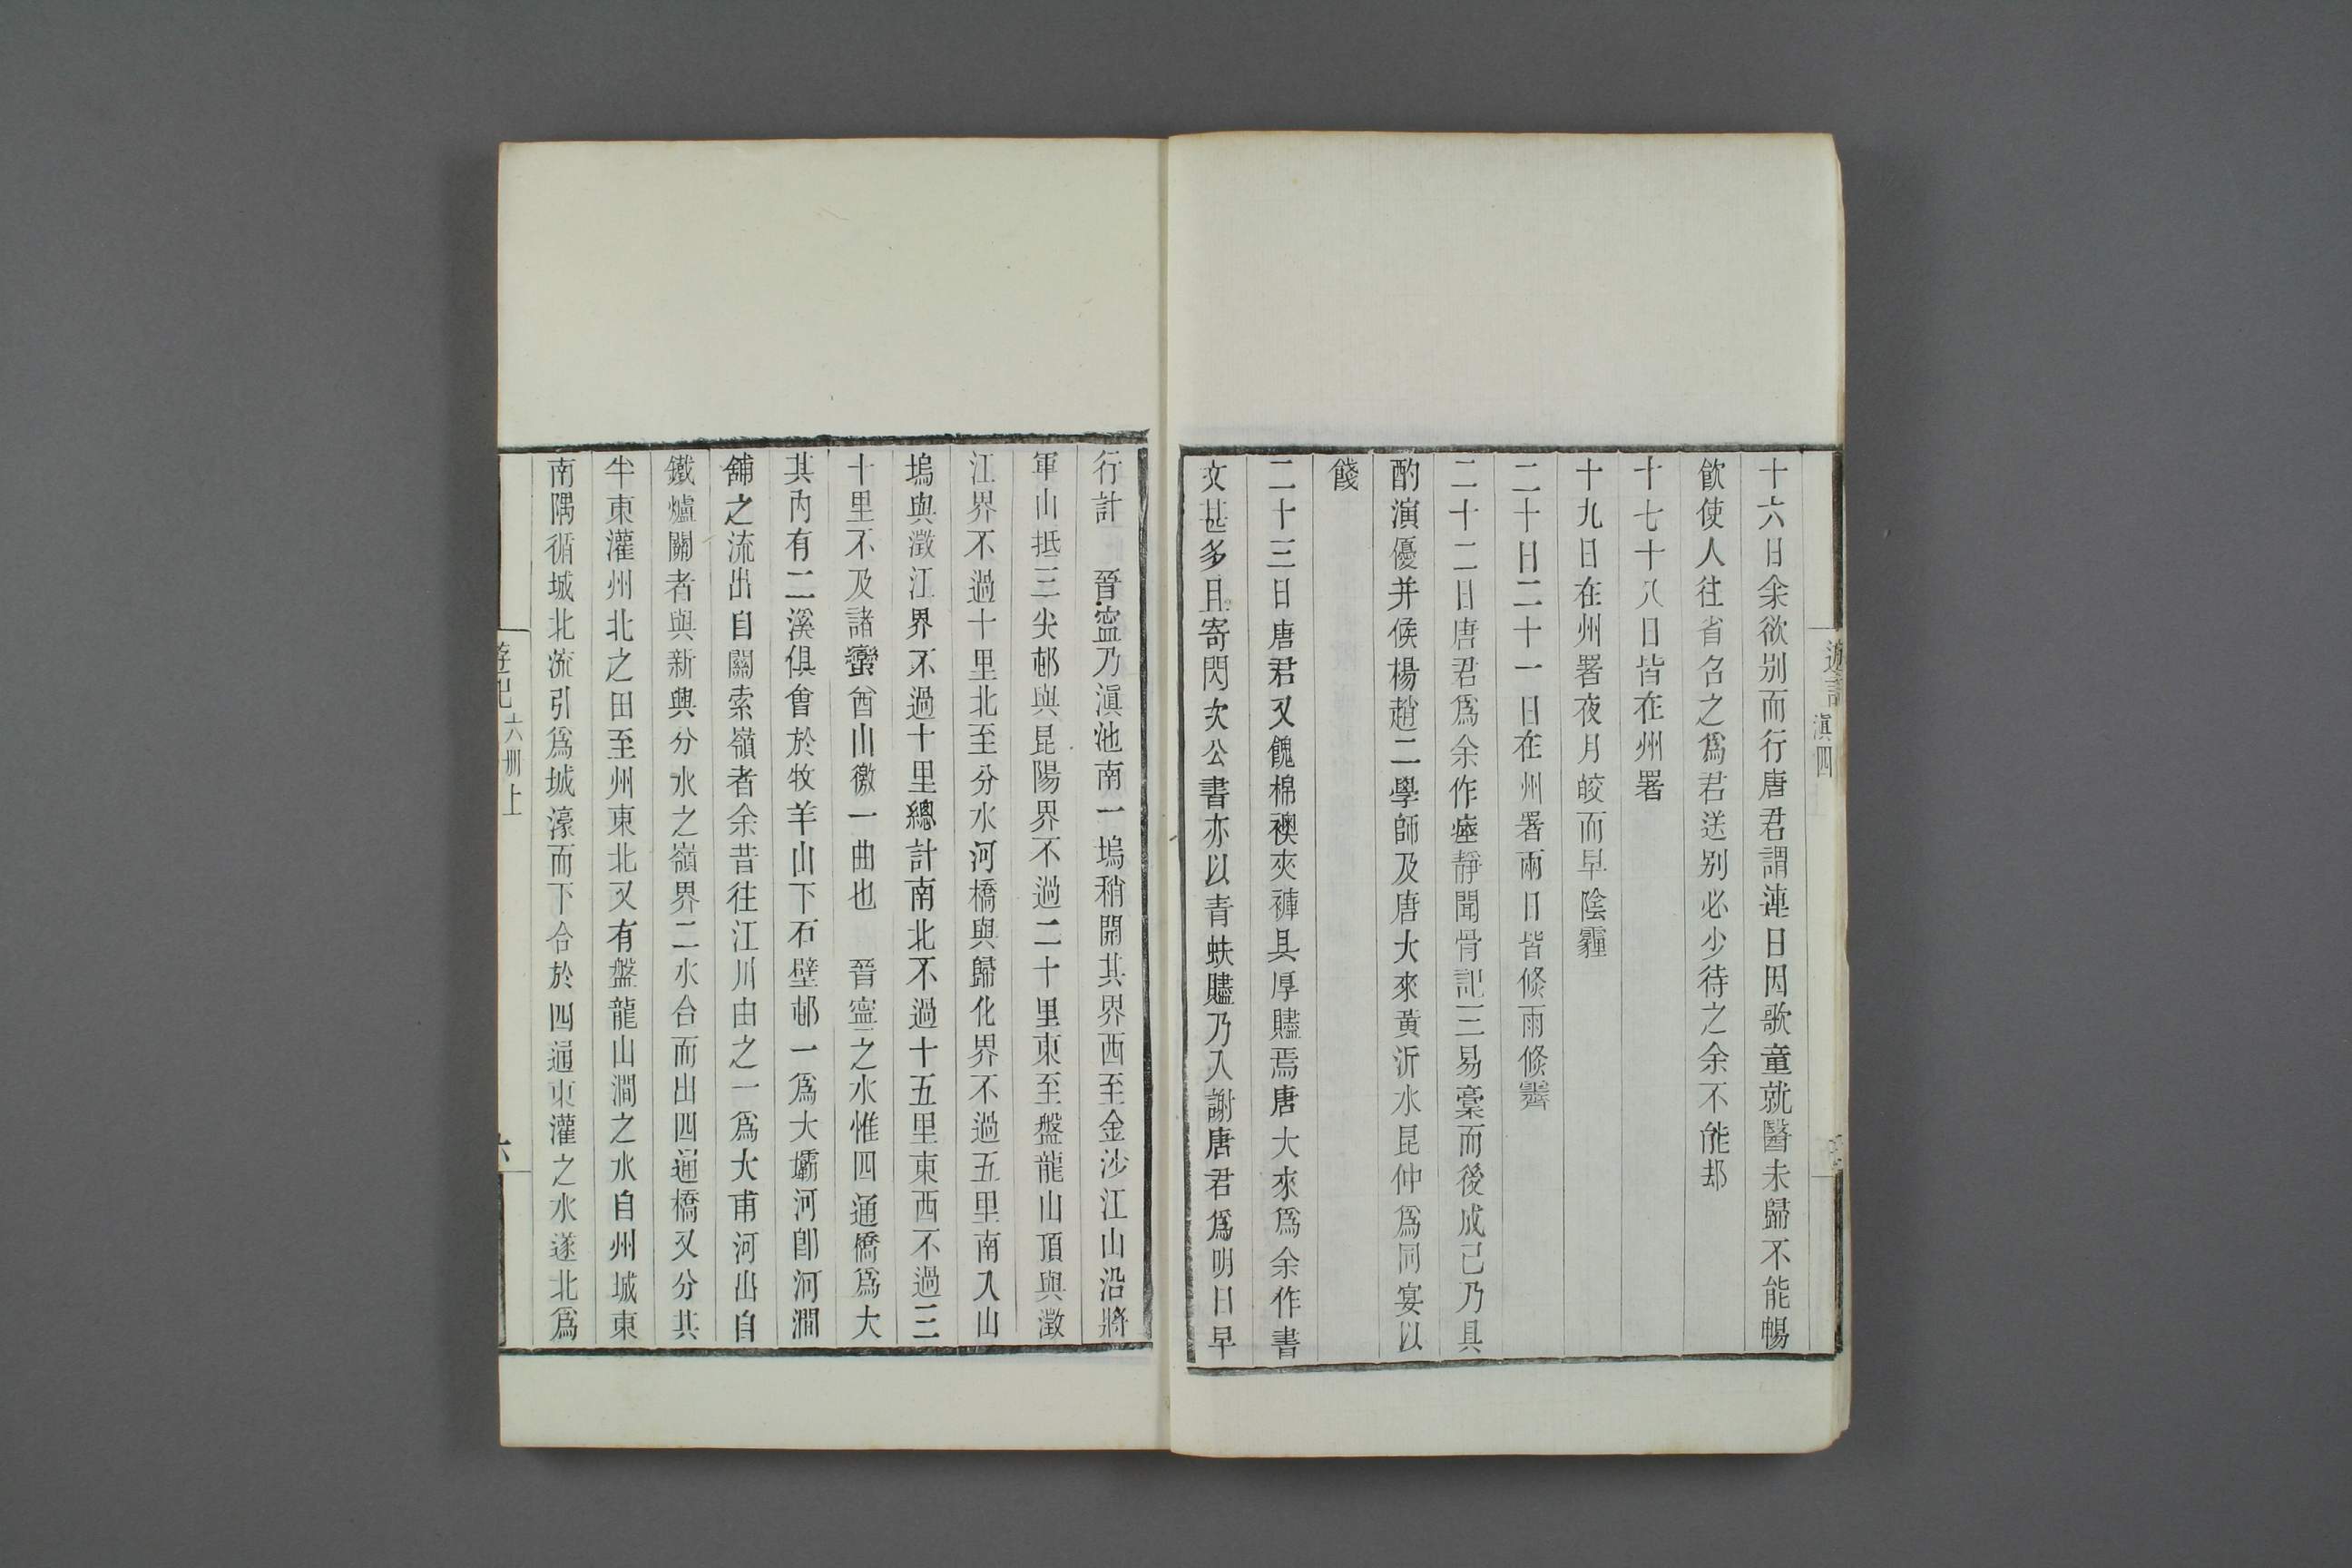 遊記 滇四
十六日余欲別而行唐君謂連日因歌童就醫未歸不能暢
飮使人往省名之爲君送別必少待之余不能却
十七十八日皆在州署
十九日在州署夜月皎而早陰霾
二十日二十一日在州署兩日皆倐雨倐霽
二十二日唐君爲余作瘞靜聞骨記三易稾而後成已乃具
酌演優并候楊趙二學師及唐大來黃沂水昆仲爲同宴以
餞
二十三日唐君又餽棉襖夾褲具厚贐焉唐大來爲余作書
文甚多且寄閃次公書亦以青蚨贐乃入謝唐君爲明日早
行計 晉寍乃滇池南一塢稍開其界西至金沙江山沿將
軍山抵三尖邨與昆陽界不過二十里東至盤龍山頂與澂
江界不過十里北至分水河橋與歸化界不過五里南入山
塢與澂江界不過十里總計南北不過十五里東西不過三
十里不及諸蠻酋山徼一曲也 晉寍之水惟四通橋爲大
其內有二溪俱會於牧羊山下石壁邨一爲大壩河卽河澗
舖之流出自關索嶺者余昔往江川由之一爲大甫河出自
鐵爐關者與新興分水之嶺界二水合而出四通橋又分其
半東灌州北之田至州東北又有盤龍山澗之水自州城東
南隅循城北流引爲城濠而下合於四通東灌之水遂北爲
遊記 六册上 六